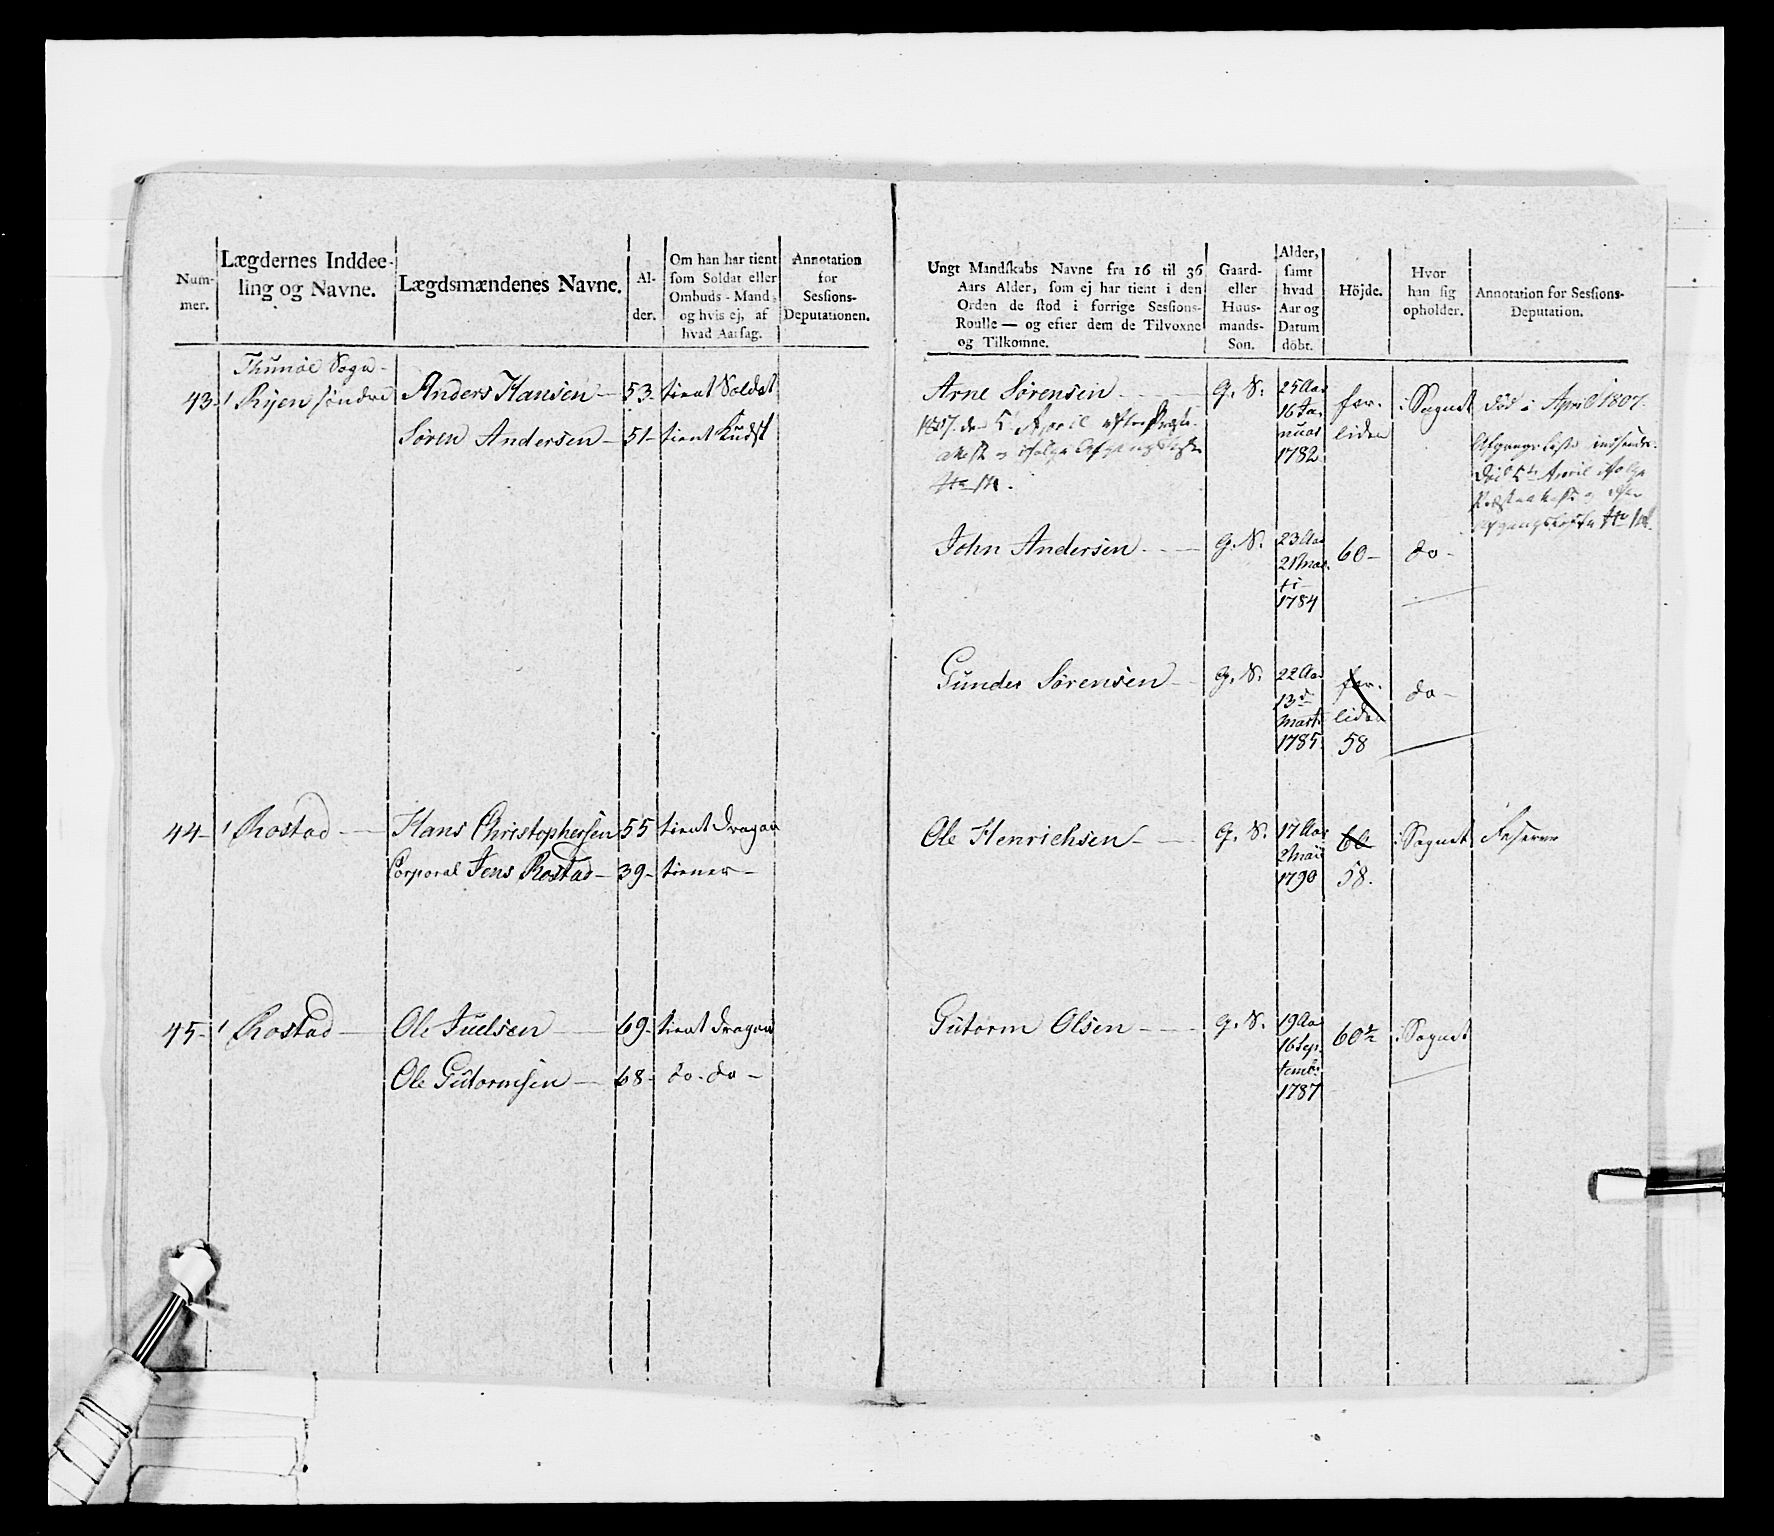 Num-
mer.
Lægdernes Inddee-
ling og Navne.
Lægdsmændenes Navne.
Al-
der.
Om han har tient
som Soldat eller
Ombuds-Mand,
og hvis ej, af
hvad Aarsag.
Annotation
for
Sessions-
Deputationen.
Thunöe Sogn
43. 1 Ryen söndre
Anders Hansen — 53. tient Soldat
Søren Andersen — 51 — tient
44 — 1 Rostad — Hans Christophersen 55 tient Dragon
Corporal Jens Rostad — 39 — tiener —
45 — 1 Rostad — Ole Juelsen — 69 — tient Dragon
Ole Gutormsen — 68 — do — do —
Ungt Mandskabs Navne fra 16 til 36
Aars Alder, som ej har tient i den
Orden de stod i forrige Sessions-
Roulle — og efter dem de Tilvoxne
og Tilkomne.
Gaard-
eller
Huus-
mands-
Son.
Alder,
samt
hvad
Aar og
Datum
döbt.
Höjde.
Hvor
han sig
opholder.
Annotation for Sessions-
Deputation.
Arne Sørensen G. S. 25 Aar
16 Ja-
nuar
1782
for-
liden
i Sognet
död i April 1807.
1807. den 5 April efter
Afgangsliste
död 5te April
John Andersen — G. S. 23 Aar
21 Mar-
ti
1784
60 — do —
Gunder Sørensen — G. S. 22 Aar
13de
Marti
1785.
for-
liden
58
do —
Ole Henrichsen — G. S. 17 Aar
2 Maii
1790
60
58.
i Sognet Reserve
Gutorm Olsen — G. S. 19 Aar
16 Sep-
tembr
1787
60½ i Sognet